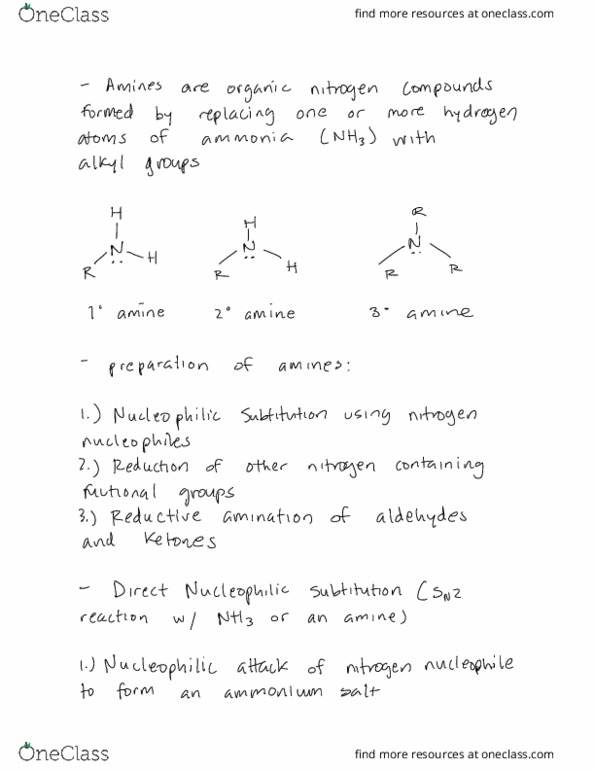 OneClass
find more resources at oneclass.com
- Amines are organic nitrogen compounds
formed by replacing one or more hydrogen
atoms of ammonia (NH3) with
alkyl groups
H
N
R
H
H
N
R
H
R
N
R
R
1° amine
2° amine
3° amine
- preparation of amines:
1.) Nucleophilic Subtitution using nitrogen
nucleophiles
2.) Reduction of other nitrogen containing
fuctional groups
3.) Reductive amination of aldehydes
and ketones
- Direct Nucleophilic subtitution (SN2
reaction w/ NH3 or an amine)
1.) Nucleophilic attack of nitrogen nucleophile
to form an ammonium salt
OneClass
find more resources at oneclass.com